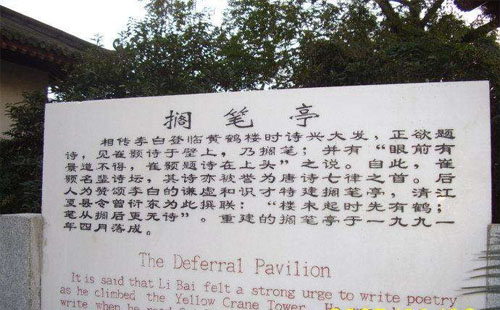 搁笔亭
相传李白登临黄鹤楼时诗兴大发，正欲题
诗，见崔颢诗于壁上，乃搁笔；并有“眼前有
景道不得，崔颢题诗在上头”之说。自此，崔
颢名斐诗坛，其诗亦被誉为唐诗七律之首。后
人为赞颂李白的谦虚和识才特建搁笔亭，清江
夏县令曾衍东为此撰联：“楼未起时先有鹤；
笔从搁后更无诗”。重建的搁笔亭于一九九一
年四月落成。
The Deferral Pavilion
It is said that Li Bai felt a strong urge to write poetry
as he climbed the Yellow Crane Tower.
write when he